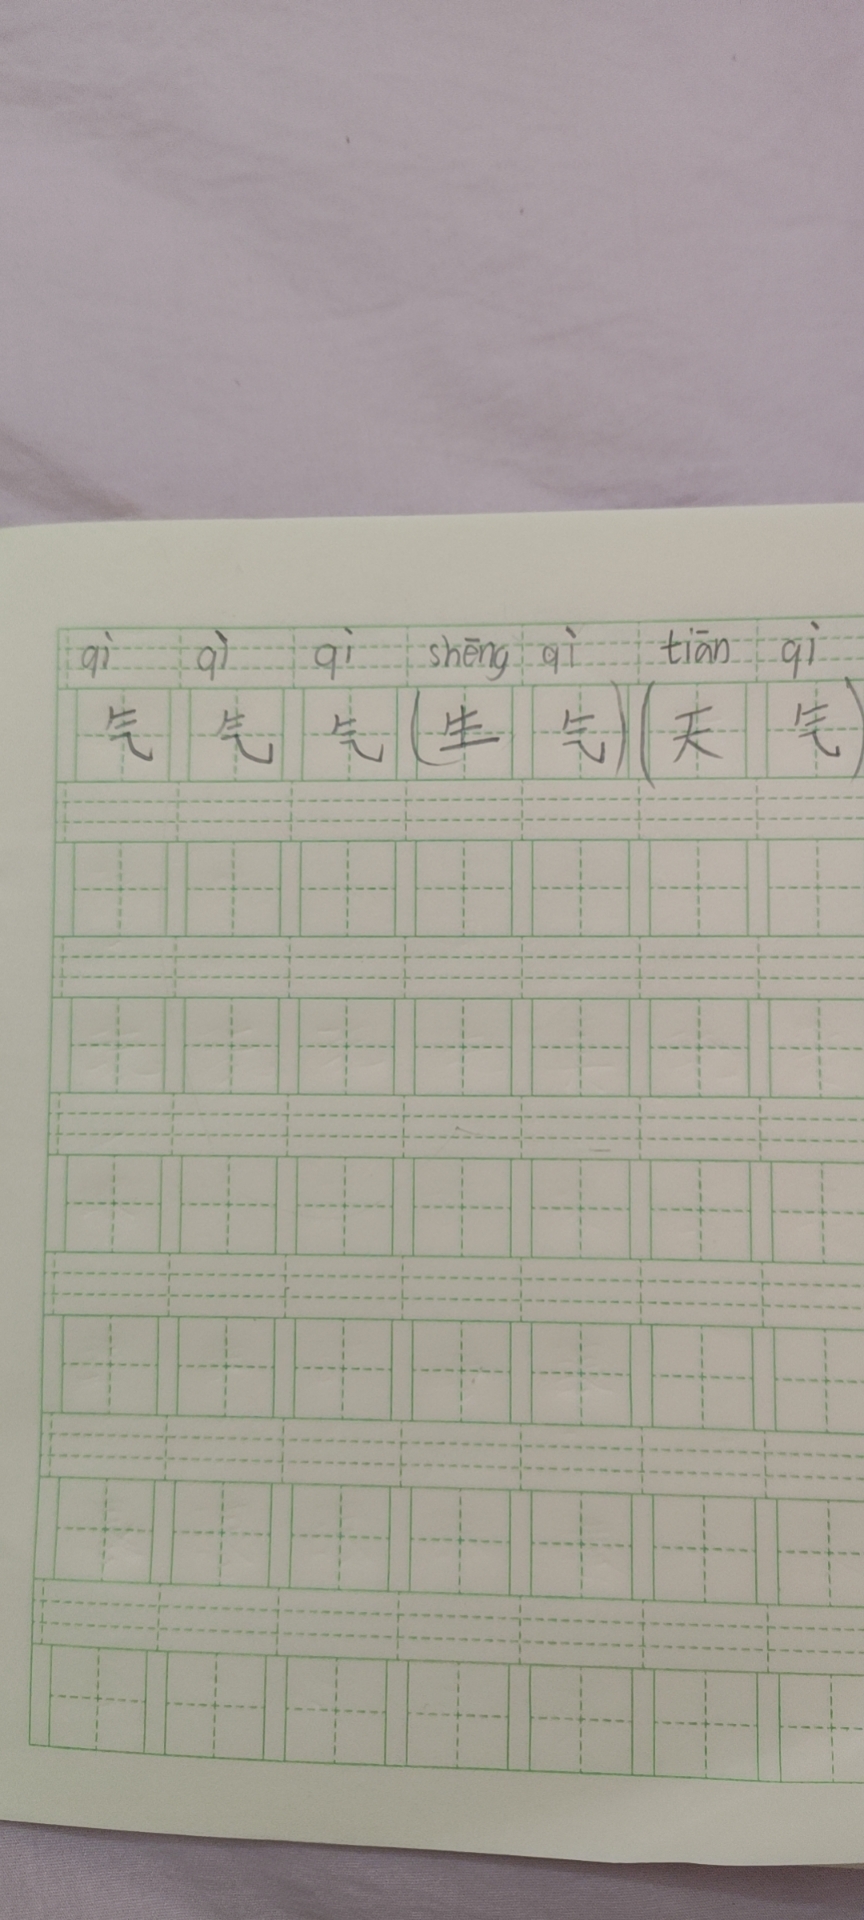 qì qì qì shēng qì tiān qì
气 气 气 (生 气) (天 气)